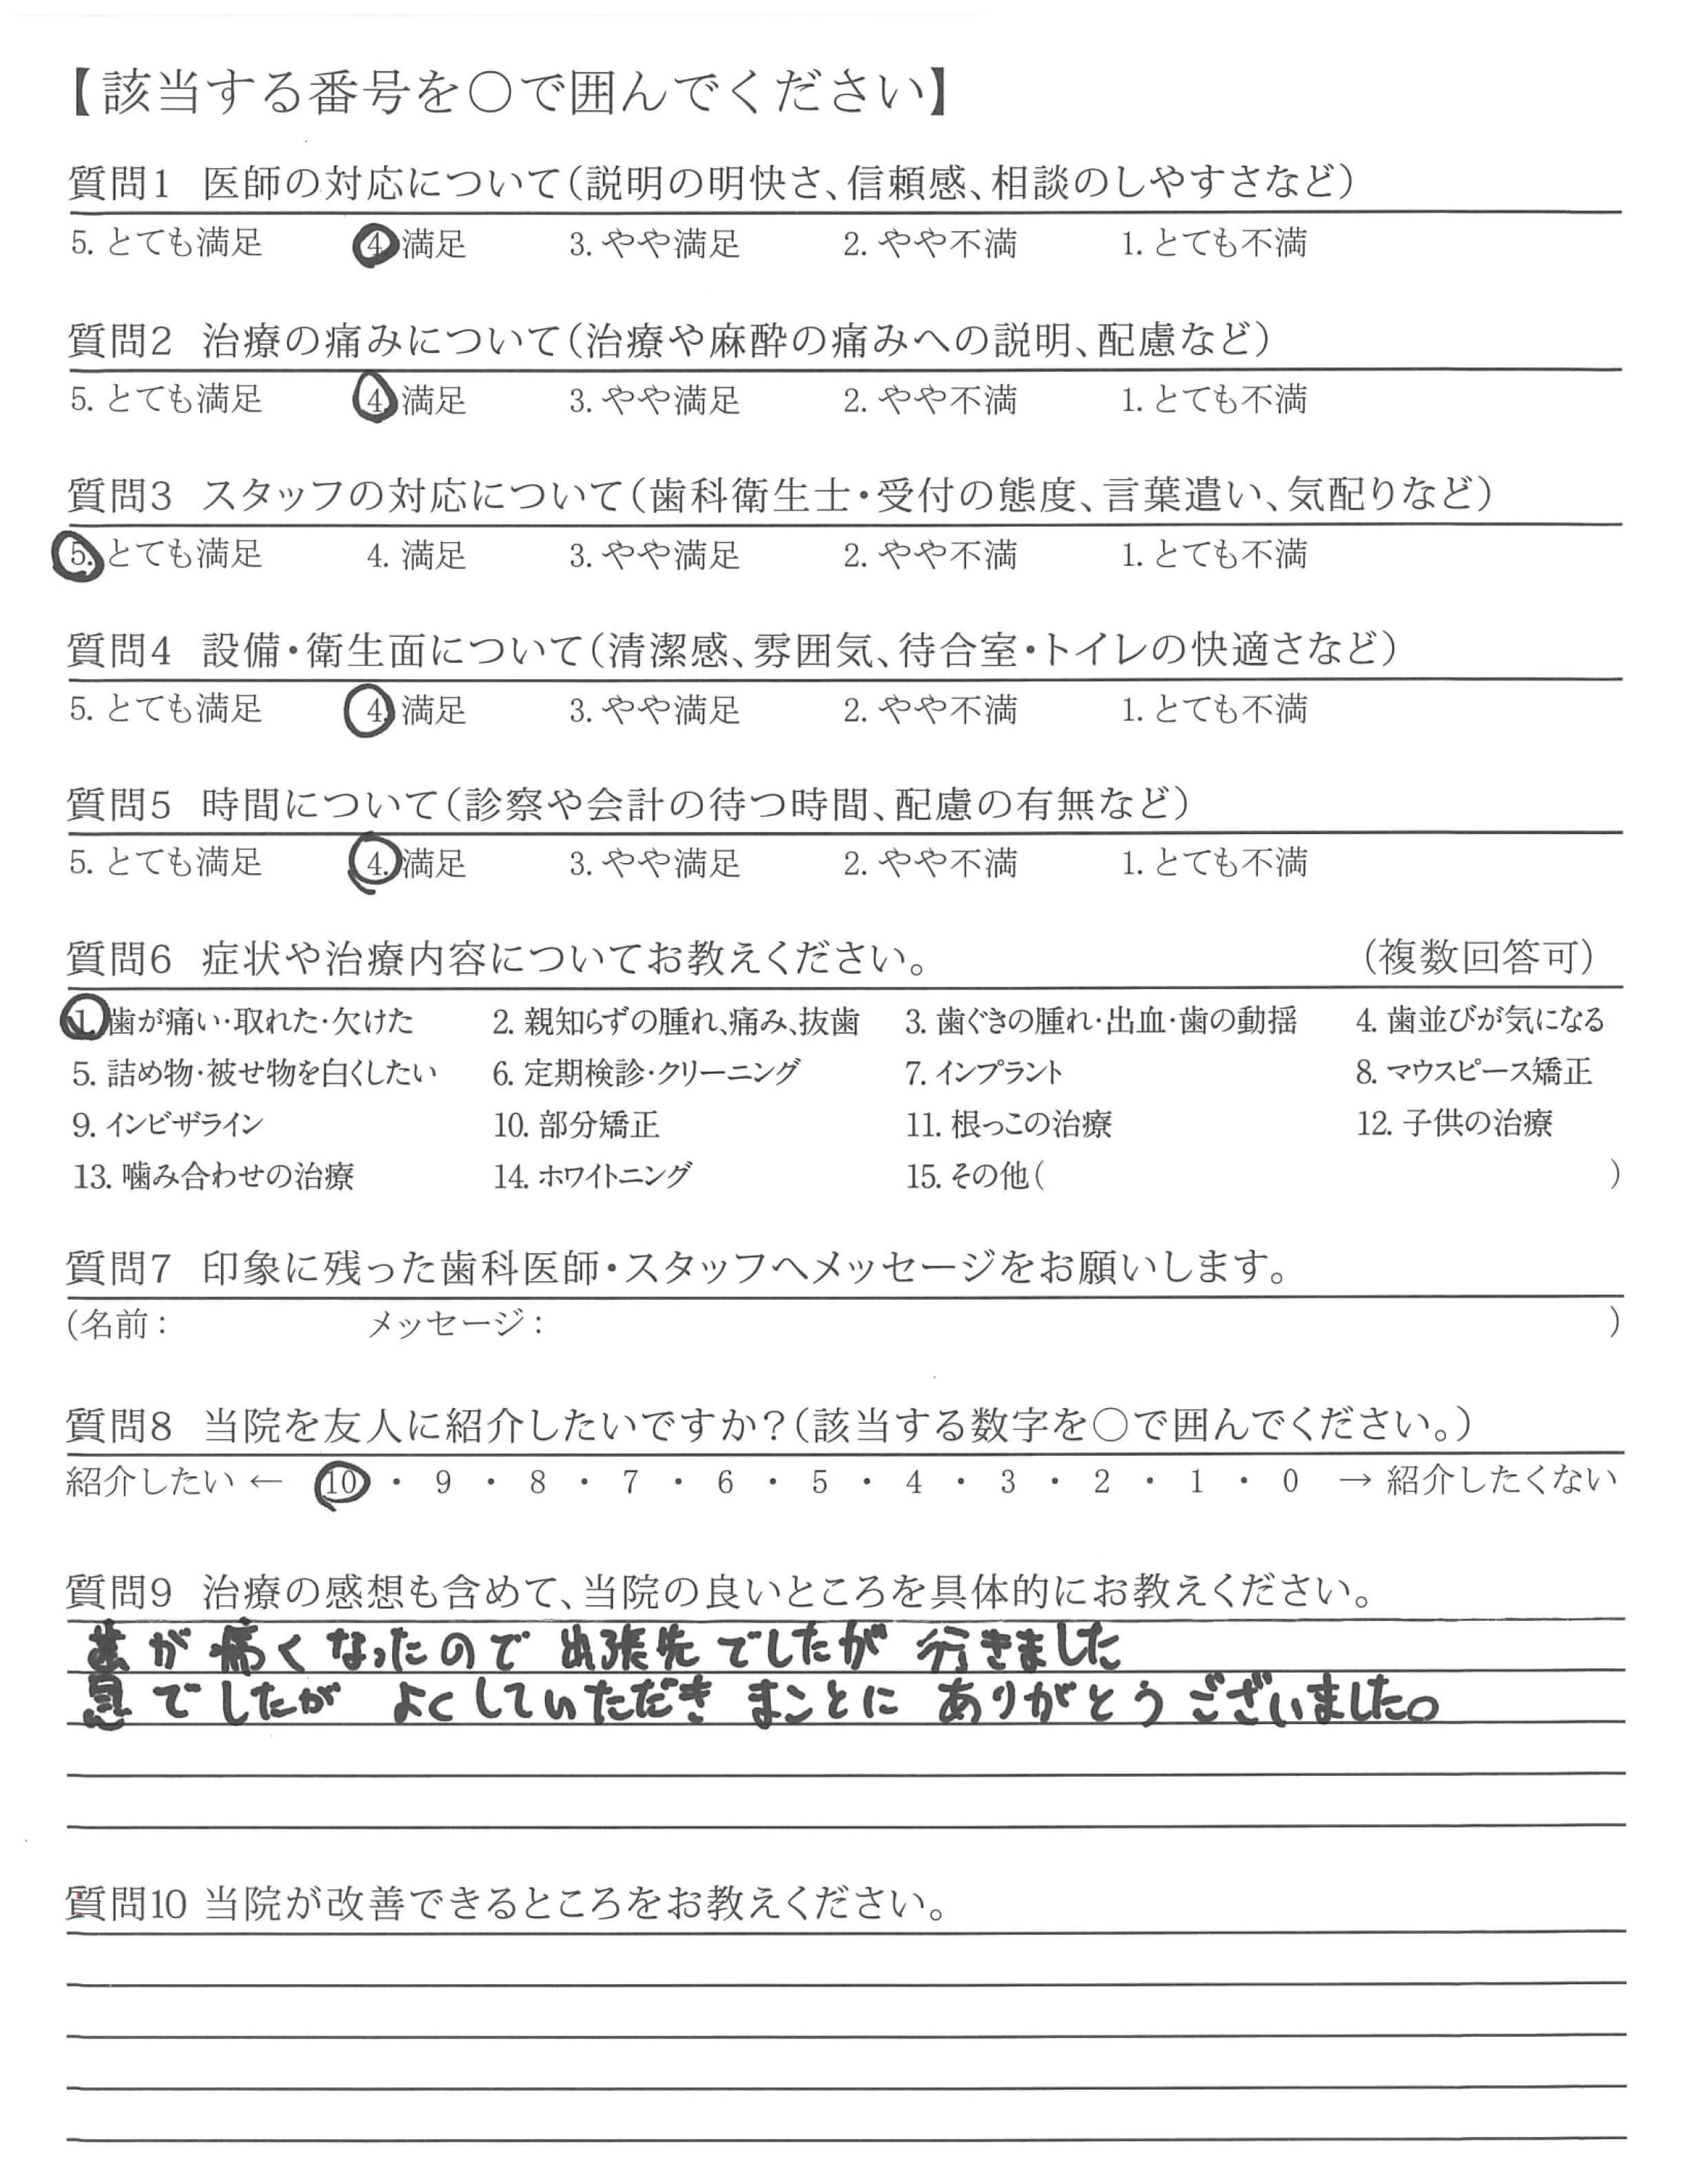 【該当する番号を○で囲んでください】
質問1 医師の対応について(説明の明快さ、信頼感、相談のしやすさなど)
5. とても満足 4. 満足 3. やや満足 2. やや不満 1. とても不満
質問2 治療の痛みについて(治療や麻酔の痛みへの説明、配慮など)
5. とても満足 4. 満足 3. やや満足 2. やや不満 1. とても不満
質問3 スタッフの対応について(歯科衛生士・受付の態度、言葉遣い、気配りなど)
5. とても満足 4. 満足 3. やや満足 2. やや不満 1. とても不満
質問4 設備・衛生面について(清潔感、雰囲気、待合室・トイレの快適さなど)
5. とても満足 4. 満足 3. やや満足 2. やや不満 1. とても不満
質問5 時間について(診察や会計の待つ時間、配慮の有無など)
5. とても満足 4. 満足 3. やや満足 2. やや不満 1. とても不満
質問6 症状や治療内容についてお教えください。 (複数回答可)
1. 歯が痛い・取れた・欠けた 2. 親知らずの腫れ、痛み、抜歯 3. 歯ぐきの腫れ・出血・歯の動揺 4. 歯並びが気になる
5. 詰め物・被せ物を白くしたい 6. 定期検診・クリーニング 7. インプラント 8. マウスピース矯正
9. インビザライン 10. 部分矯正 11. 根っこの治療 12. 子供の治療
13. 噛み合わせの治療 14. ホワイトニング 15. その他( )
質問7 印象に残った歯科医師・スタッフへメッセージをお願いします。
(名前: メッセージ: )
質問8 当院を友人に紹介したいですか?(該当する数字を○で囲んでください。)
紹介したい ← 10 ・ 9 ・ 8 ・ 7 ・ 6 ・ 5 ・ 4 ・ 3 ・ 2 ・ 1 ・ 0 → 紹介したくない
質問9 治療の感想も含めて、当院の良いところを具体的にお教えください。
歯が痛くなったので 出張先でしたが 行きました
急でしたが よくしていただき まことに ありがとう ございました。
質問10 当院が改善できるところをお教えください。